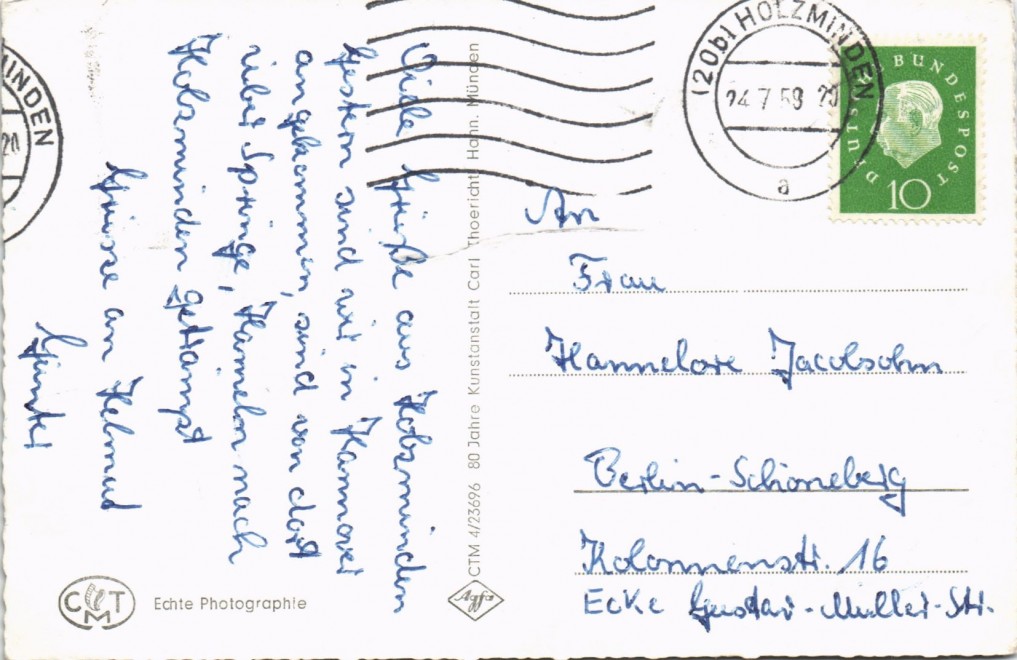 Viele Grüße aus Holzminden
Gestern sind wir in Hannover
angekommen, sind von dort
über Springe, Hameln nach
Holzminden getrampt
Grüsse an Helmut
Günter
CTM 4/23696 80 Jahre Kunstanstalt Carl Thoericht Hann. Münden
Agfa
CMT
Echte Photographie
MINDEN
20
(20b) HOLZMINDEN
24.7.59
a
DEUTSCHE BUNDESPOST
10
An
Frau
Hannelore Jacobsohn
Berlin-Schöneberg
Kolonnenstr. 16
Ecke Gustav-Müller-Str.